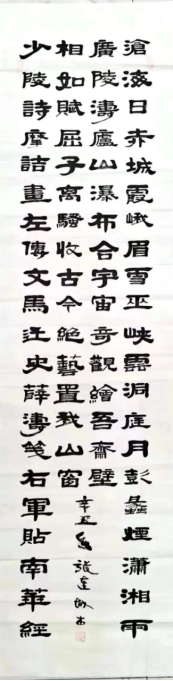 滄海日赤城霞峨眉雪巫峽雲洞庭月彭蠡煙瀟湘雨
廣陵濤廬山瀑布合宇宙奇觀繪吾齋壁
少陵詩摩詰畫左傳文馬迁史薛濤笺右軍貼南華經
相如賦屈子离騷收古今絕藝置我山窗
辛丑 張達 書